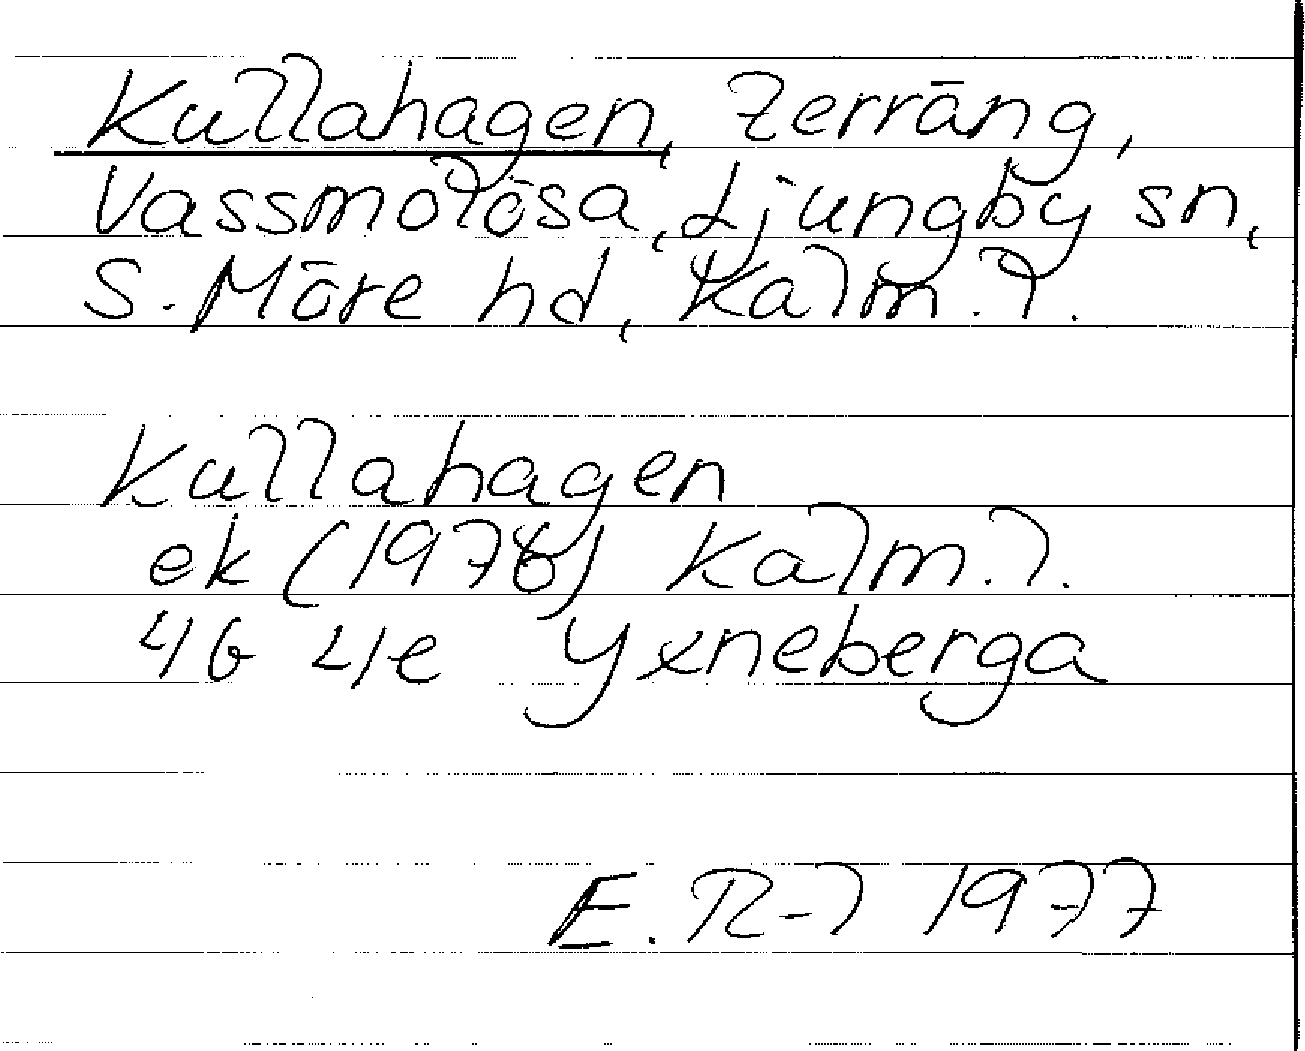 Kullahagen, Terräng,
Vassmolösa, Ljungby sn,
S. Möre hd, Kalm. l.
Kullahagen
ek (1976) Kalm. l.
4G 4e Yxneberga
E. R-l 1977